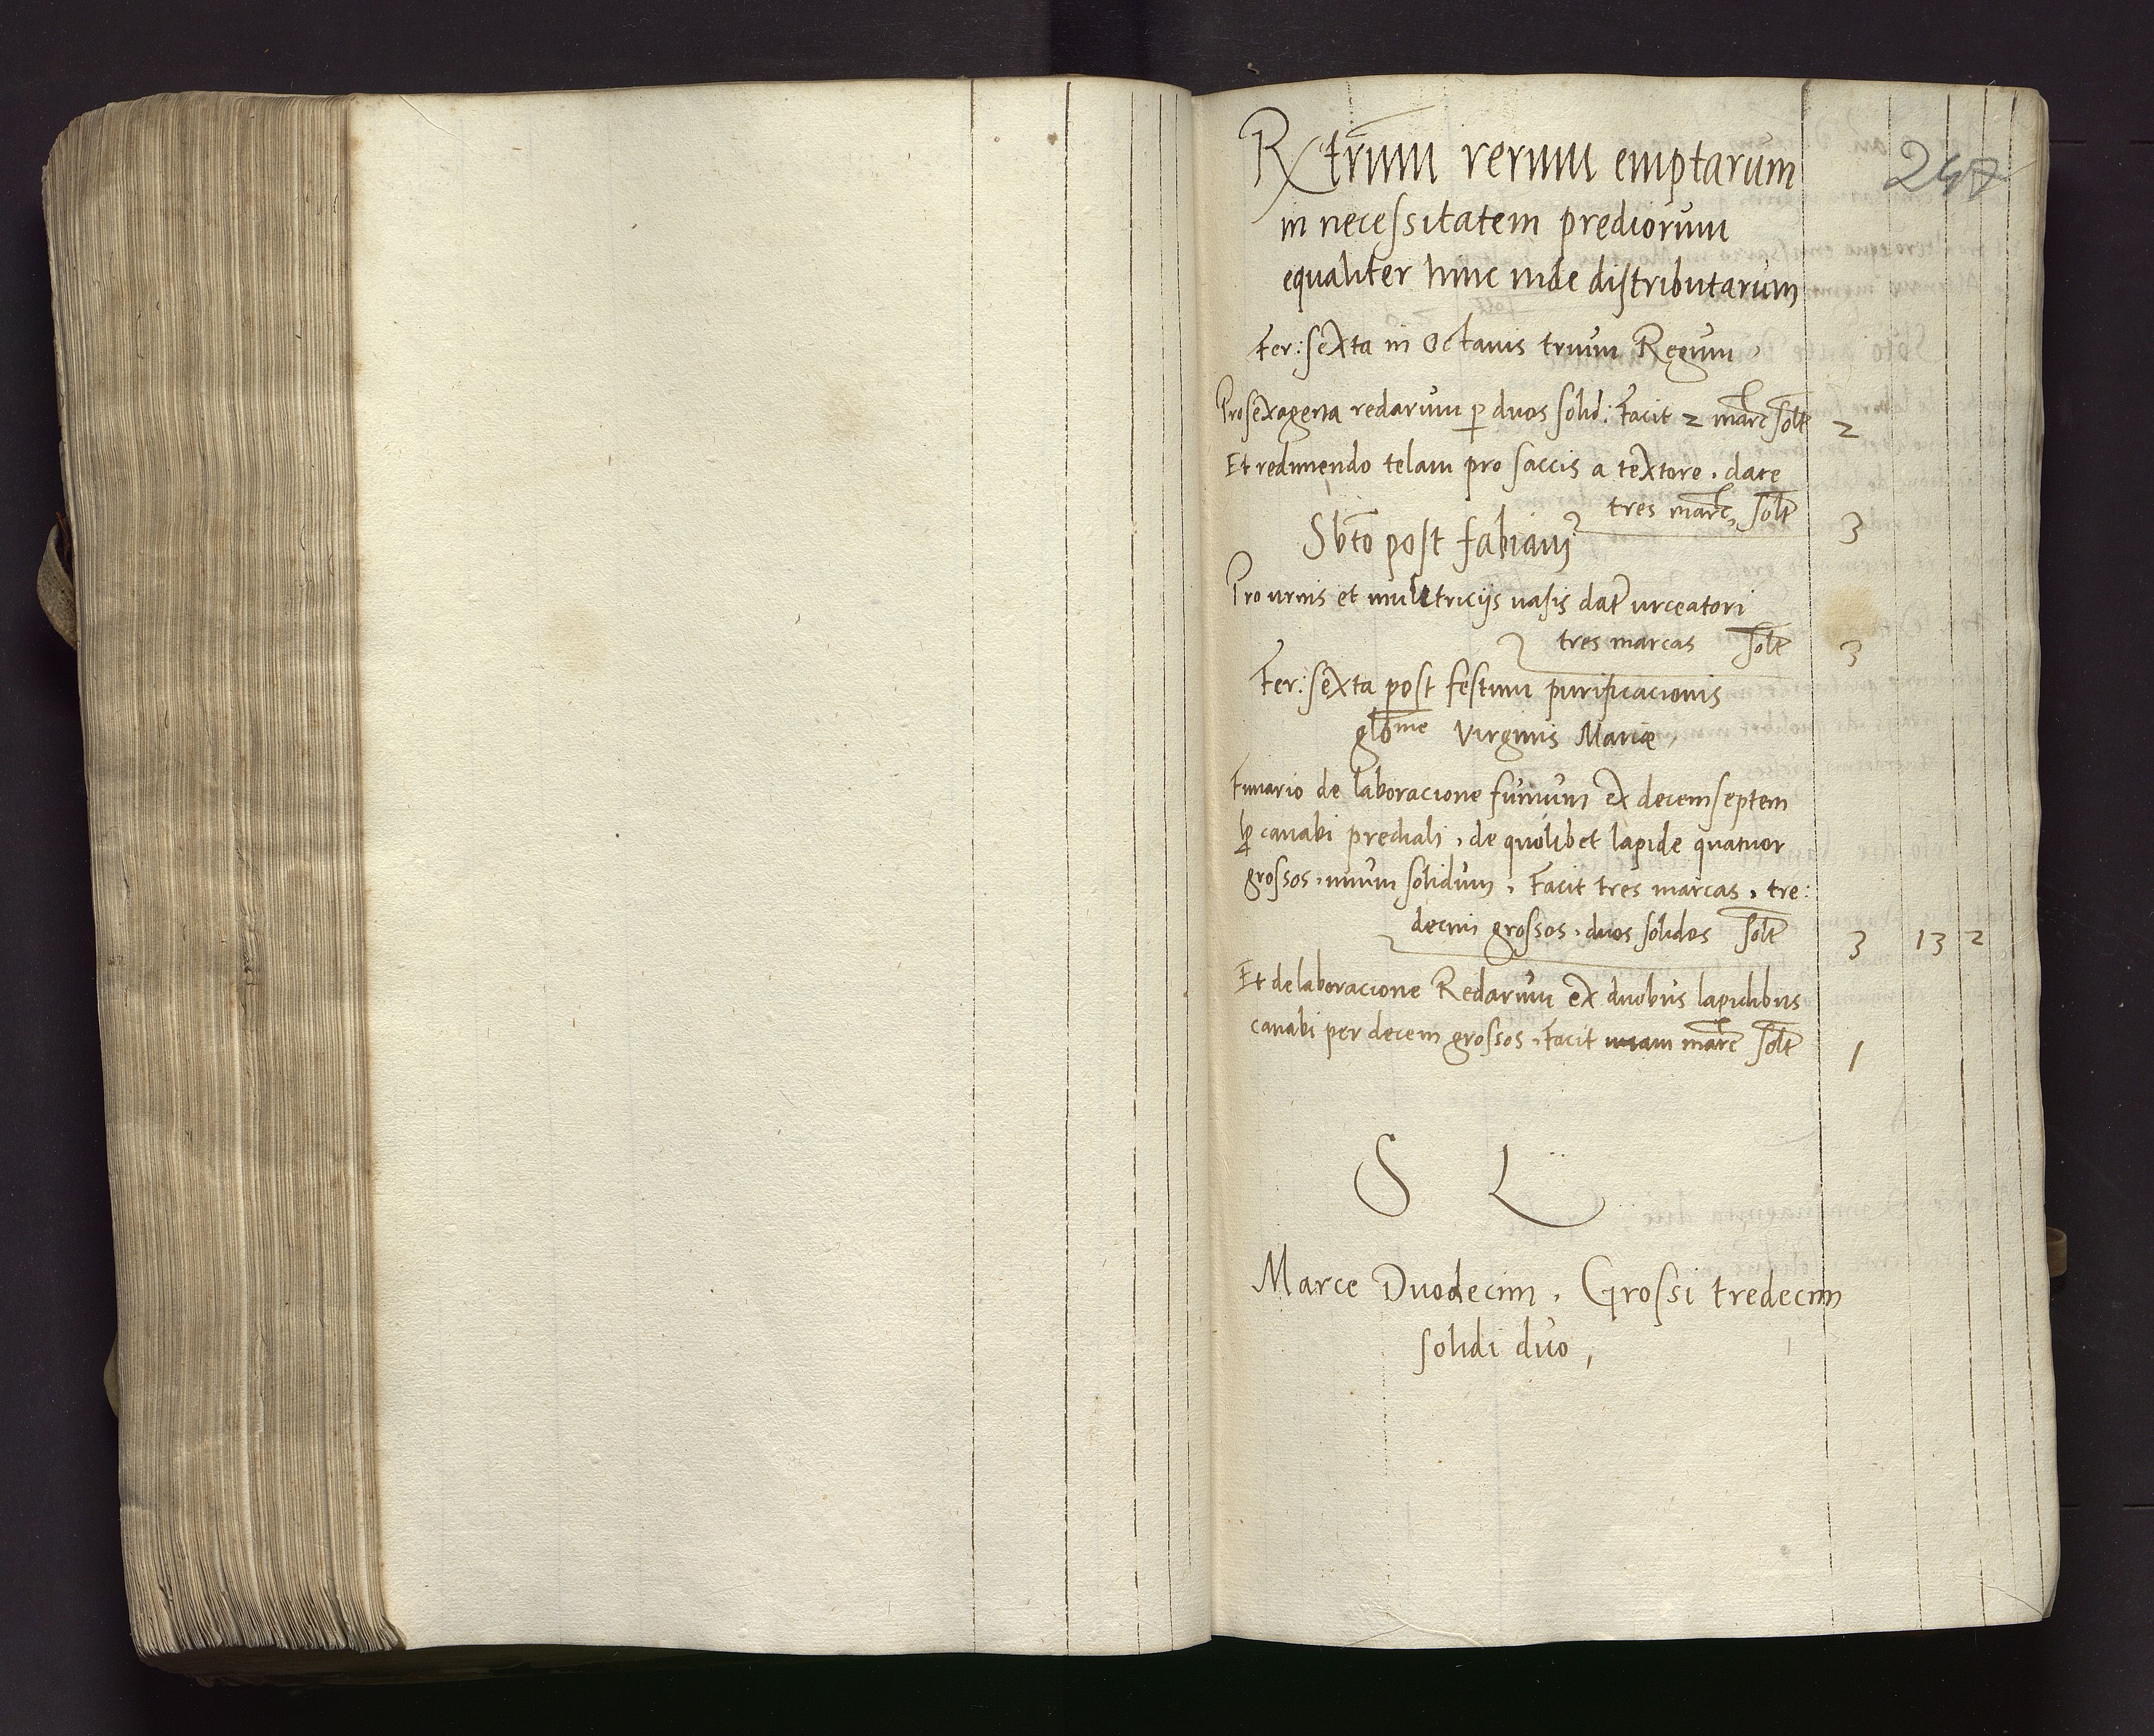 Rxtrum rerum emptarum
247
in necessitatem prediorum
equaliter hinc inde distributarum
Fer: sexta in Octavis trium Regum,
Pro sexagena redarum p duos solid: Facit 2 marc solt 2
Et redimendo telam pro saccis a textore, date
tres marc, solt 3
Sbto post fabiani
Pro urnis et mulctricijs vasis dat urceatori
tres marcas solt 3
Fer: sexta post festum purificacionis
glõme Virginis Mariæ,
Funario de laboracione funium ex decemseptem
canabi prediali, de quolibet lapide quatuor
grossos, unum solidum, Facit tres marcas, tre:
decim grossos, duos solidos solt 3 13 2
Et de laboracione Redarum ex duobus lapidibus
canabi per decem grossos, Facit unam marc solt 1
S L
Marce Duodecim, Grossi tredecim
solidi duo,